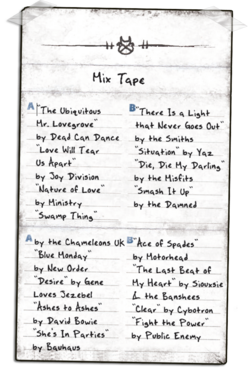 Mix Tape
A "The Ubiquitous
Mr. Lovegrove"
by Dead Can Dance
"Love Will Tear
Us Apart"
by Joy Division
"Nature of Love"
by Ministry
"Swamp Thing"
B "There Is a Light
that Never Goes Out"
by the Smiths
"Situation" by Yaz
"Die, Die My Darling"
by the Misfits
"Smash It Up"
by the Damned
A by the Chameleons UK
"Blue Monday"
by New Order
"Desire" by Gene
Loves Jezebel
"Ashes to Ashes"
by David Bowie
"She's In Parties"
by Bauhaus
B "Ace of Spades"
by Motorhead
"The Last Beat of
My Heart" by Siouxsie
& the Banshees
"Clear" by Cybotron
"Fight the Power"
by Public Enemy